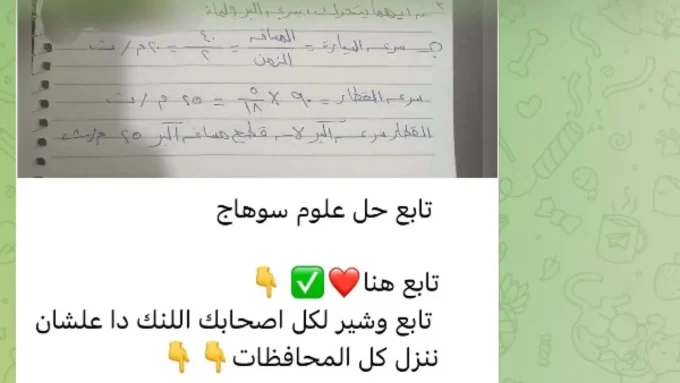 ٢ - أيهما يتحرك بسرعة أكبر ولماذا
جـ سرعة السيارة = المسافة / الزمن = ٤٠ / ٢ = ٢٠ م / ث
سرعة القطار = ٩٠ × ٥ / ١٨ = ٢٥ م / ث
القطار سرعته أكبر لأنه قطع مسافة أكبر ٢٥ م/ث
تابع حل علوم سوهاج
تابع هنا❤️✅ 👇
تابع وشير لكل اصحابك اللنك دا علشان
ننزل كل المحافظات👇 👇